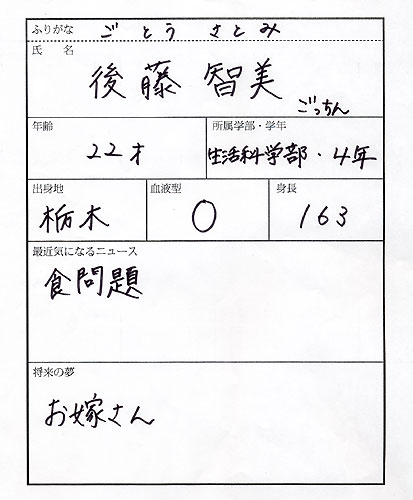 ふりがな ごとう さとみ
氏 名
後藤 智美
ごっちん
年齢 所属学部・学年
22才 生活科学部・4年
出身地 血液型 身長
栃木 O 163
最近気になるニュース
食問題
将来の夢
お嫁さん